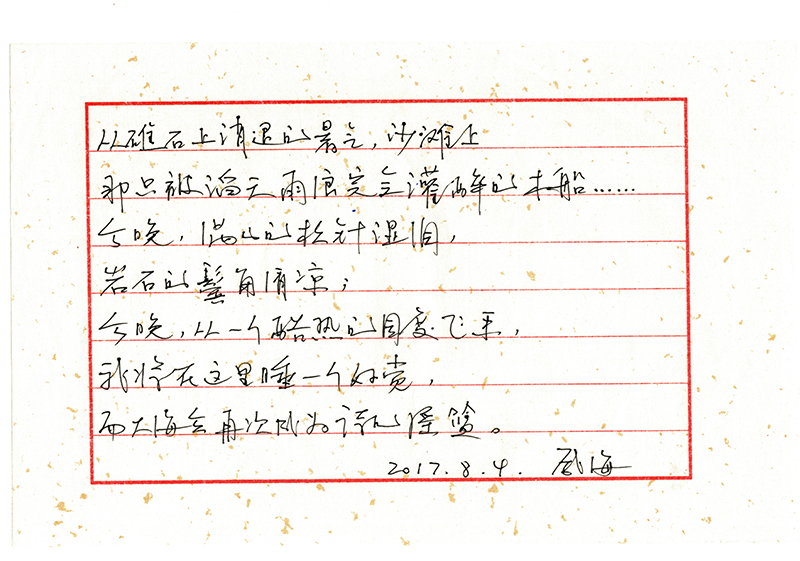 从礁石上消退的暑气,沙滩上
那只被滔天雨浪完全灌醉的木船……
今晚,满山的松针湿润,
岩石的鬓角清凉;
今晚,从一个酷热的国度飞来,
我将在这里睡一个好觉,
而大海会再次成为诗的摇篮。
2017.8.4. 威海